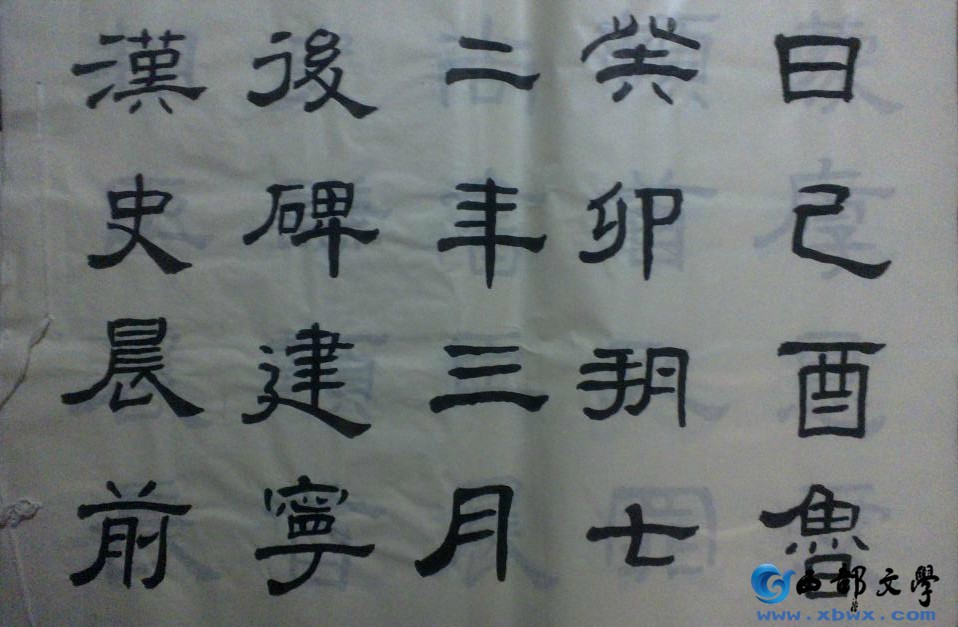 漢史晨前
後碑建寧
二年三月
癸卯朔七
日己酉魯
西部文學
www.xbwx.com